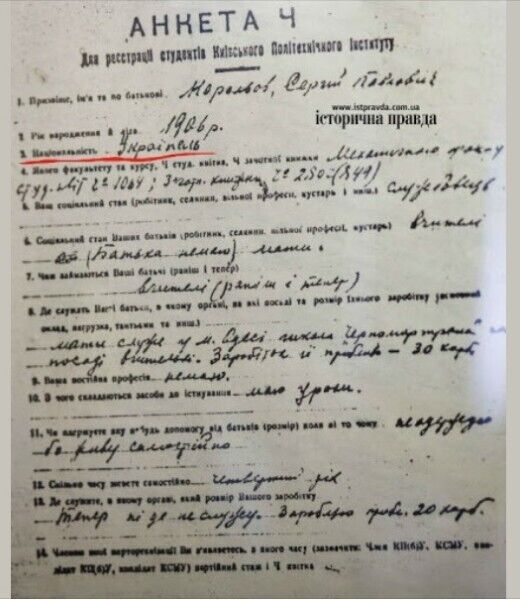 АНКЕТА Ч
Для реєстрації студентів Київського Політехнічного Інституту
1. Призвіще, ім'я та по батькові. Корольов, Сергій Павлович
www.istpravda.com.ua
історична правда
2. Рік народження й дата. 1906 р.
3. Національність Українець
4. Якого факультету та курсу, Ч студ. квітка, Ч зачотної книжки Механичного
студ. 1064
5. Ваш соціяльний стан (робітник, селянин, вільної професії, кустарь і инш.) службовець
6. Соціяльний стан Ваших батьків (робітник, селянин, вільної професії, кустарь) вчителі
(Батька немаю) мати.
7. Чим займаються Ваші батьки (раніш і тепер)
вчителі (раніш і тепер)
8. Де служать Ваші батьки, в якому органі, на які посаді та розмір їхнього заробітку
оклад, нагрузка, тантьєми та инш.)
мати служе у м. Одесі школа
посаді вчительки. Заробіток її 30 карб
9. Ваша постійна професія немаю.
10. З чого складаються засоби до існування маю уроки.
11. Чи одержуєте яку небудь допомогу від батьків (розмір) коли ні то чому неодержую
бо живу самостійно
12. Скільки часу живете самостійно четвертий рік
13. Де служите, в якому органі, який розмір Вашого заробітку
Тепер ні де не служу. Заробляю 20 карб.
14. Членом якої парторганізації Ви являєтесь, з якого часу (зазначити: Член КП(б)У, КСМУ,
кандідат КП(б)У, кандідат КСМУ) партійний стаж і Ч квітка